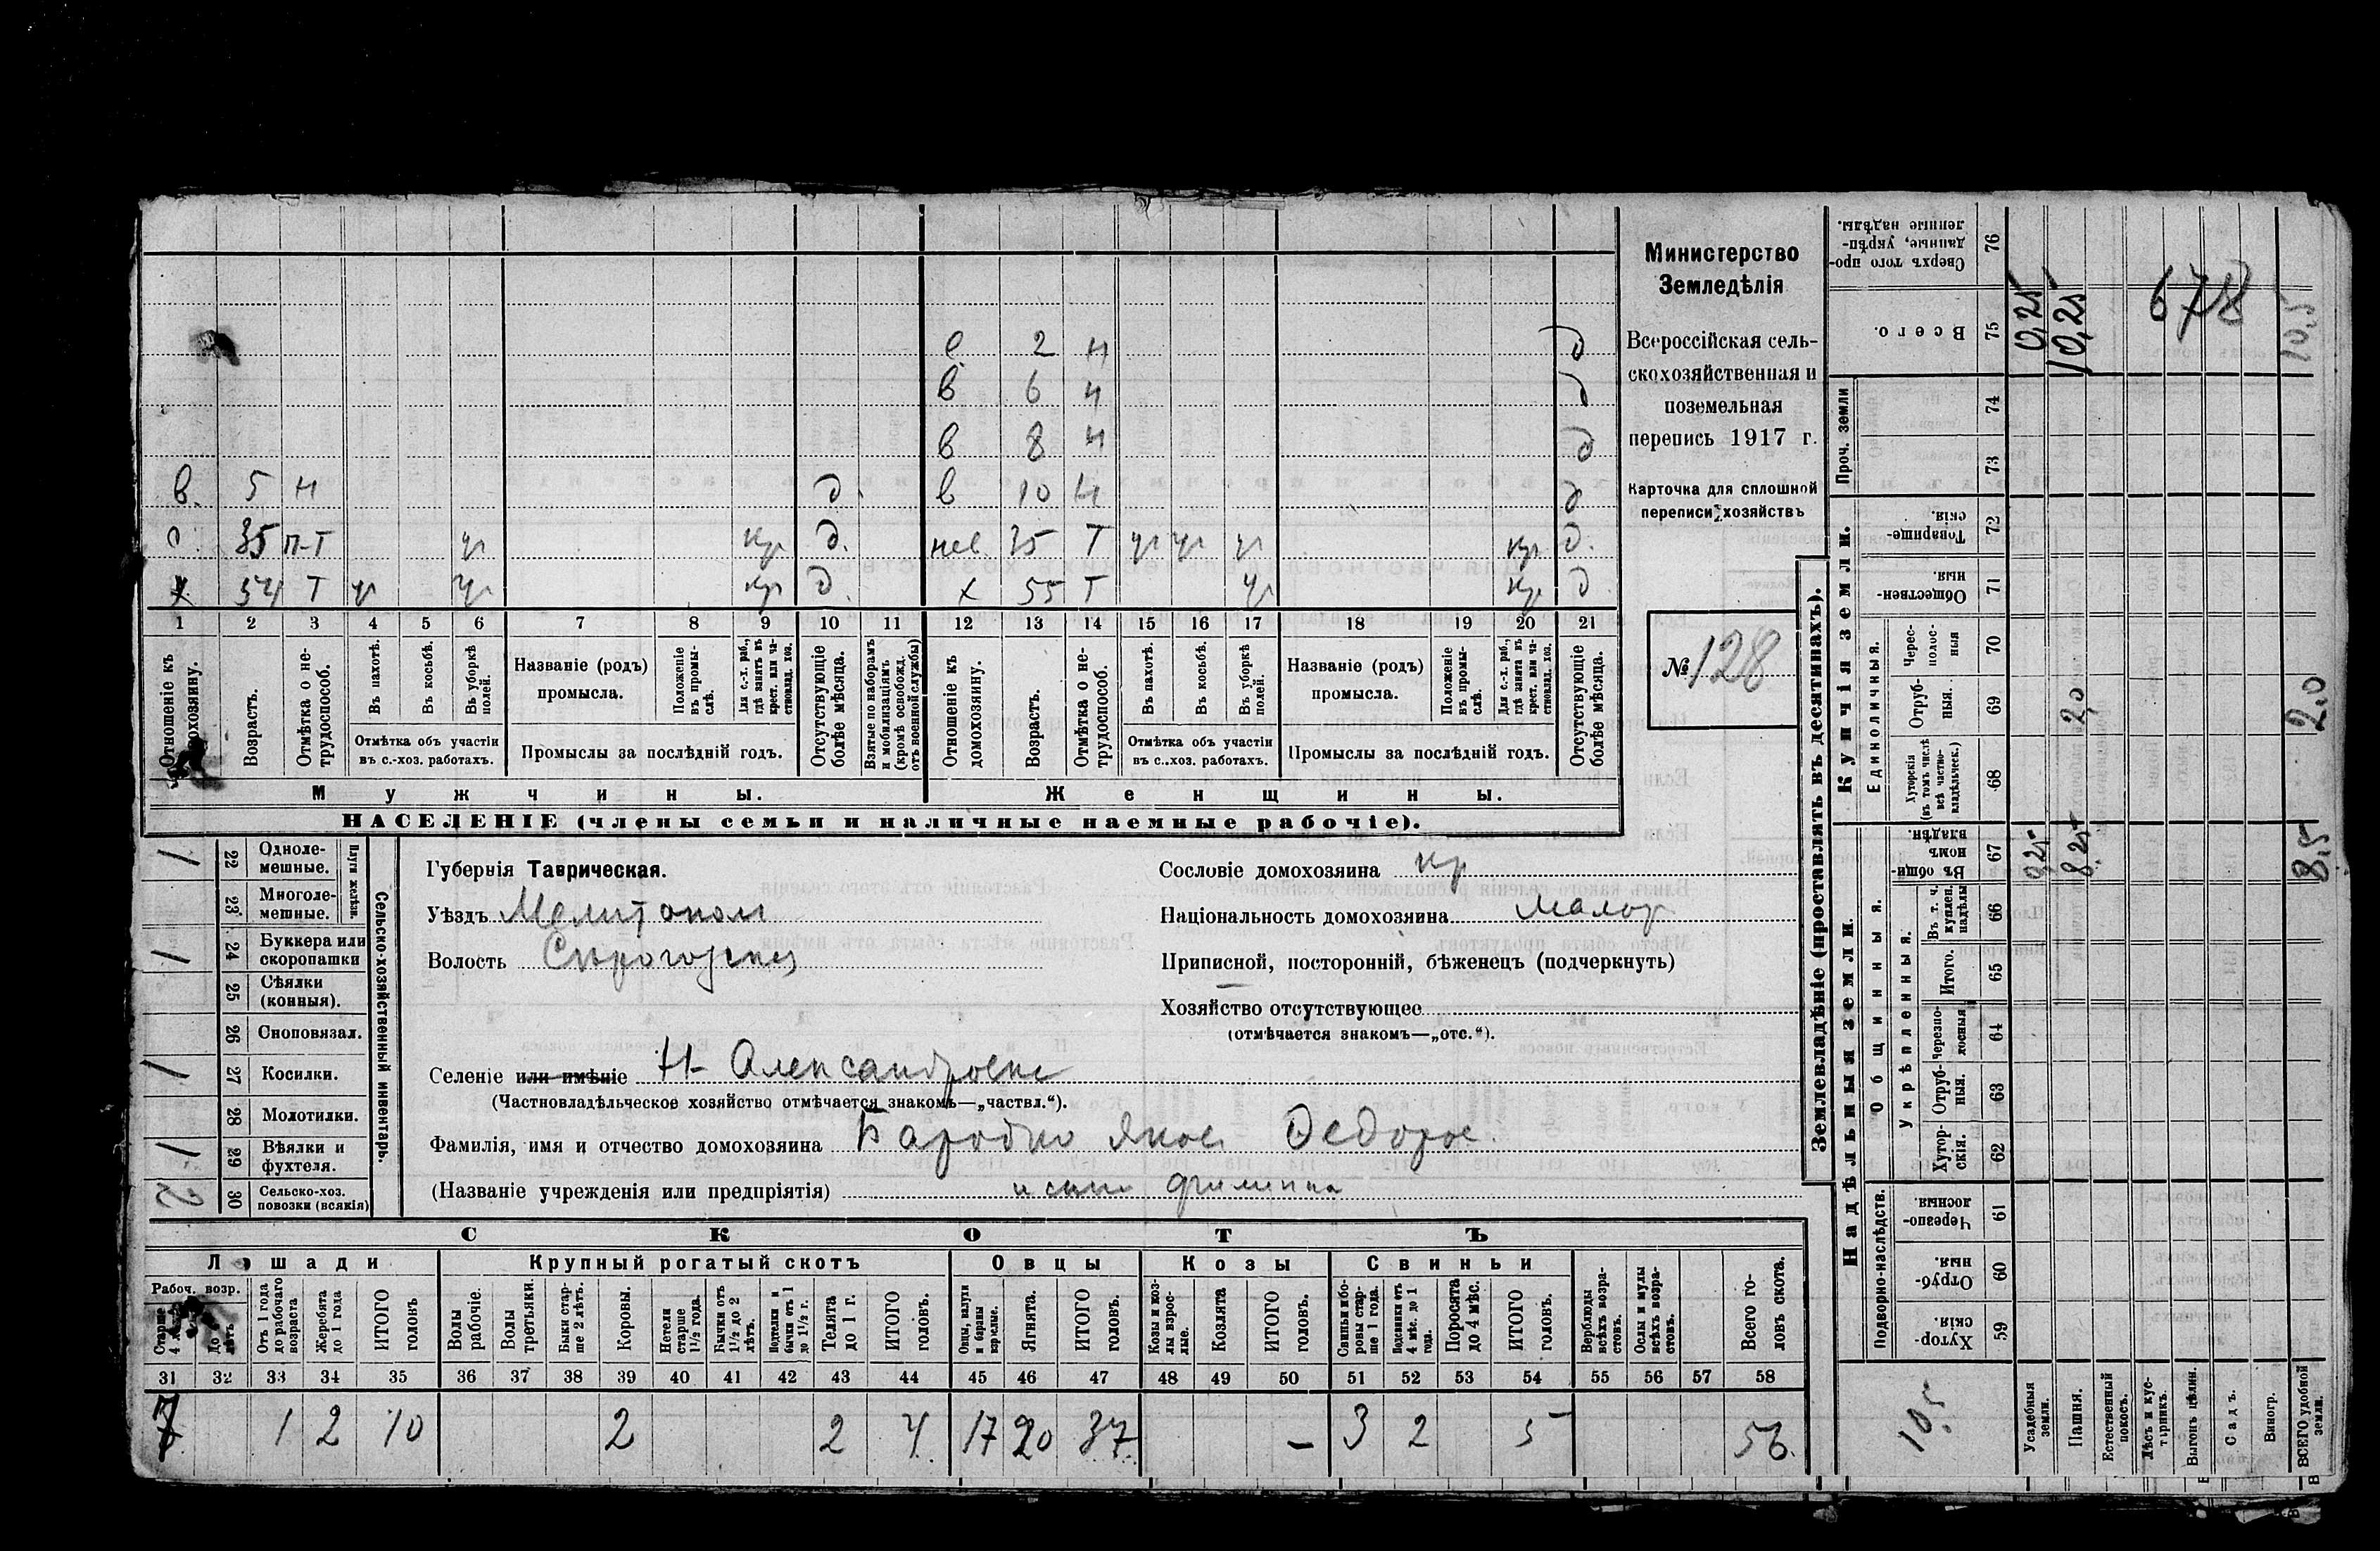 Министерство
Земледѣлія
Всероссійская сель-
скохозяйственная и
поземельная
перепись 1917 г.
Карточка для сплошной
переписи хозяйствъ
№ 128
е 2 н д
в 6 н д
в 8 н д
в. 5 н д. в 10 н д
35 п-т ур кр д. нев. 35 Т ур ур ур кр д.
х 54 Т ур ур кр д. х 55 Т ур кр д
1 2 3 4 5 6 7 8 9 10 11 12 13 14 15 16 17 18 19 20 21
Отношеніе къ домохозяину.
Возрастъ.
Отмѣтка о не-трудоспособ.
Въ пахотѣ.
Въ косьбѣ.
Въ уборкѣ полей.
Отмѣтка объ участіи въ с.-хоз. работахъ.
Названіе (родъ) промысла.
Положеніе въ промы-слѣ.
Для с.-х. раб., гдѣ занятъ въ крест. или ча-стновлад. хоз.
Промыслы за послѣдній годъ.
Отсутствующіе болѣе мѣсяца.
Взятые по наборамъ и мобилизаціямъ (кромѣ освобожд. отъ военной службы)
Отношеніе къ домохозяину.
Возрастъ.
Отмѣтка о не-трудоспособ.
Въ пахотѣ.
Въ косьбѣ.
Въ уборкѣ полей.
Отмѣтка объ участіи въ с..хоз. работахъ.
Названіе (родъ) промысла.
Положеніе въ промы-слѣ.
Для с.-х. раб., гдѣ занята въ крест. или ча-стновлад. хоз.
Промыслы за послѣдній годъ.
Отсутствующіе болѣе мѣсяца.
Мужчины. Женщины.
НАСЕЛЕНІЕ (члены семьи и наличные наемные рабочіе).
Сельско-хозяйственный инвентарь.
Плуги желѣзн.
1 22 Одноле-мешные.
23 Многоле-мешные.
1 24 Буккера или скоропашки
25 Сѣялки (конныя).
26 Сноповязал.
1 27 Косилки.
28 Молотилки.
1 29 Вѣялки и фухтеля.
2 30 Сельско-хоз. повозки (всякія)
Губернія Таврическая.
Уѣздъ Мелитопол
Волость Сирогозска
Сословіе домохозяина кр
Національность домохозяина Малор
Приписной, посторонній, бѣженецъ (подчеркнуть)
Хозяйство отсутствующее
(отмѣчается знакомъ—„отс.“).
Селеніе или имѣніе Н-Александровка
(Частновладѣльческое хозяйство отмѣчается знакомъ—„частвл.“).
Фамилія, имя и отчество домохозяина Яков Федоров.
(Названіе учрежденія или предпріятія) и сын Филиппа
СКОТЪ
Лошади Крупный рогатый скотъ Овцы Козы Свиньи
Рабоч. возр.
Старше 4 л
До лѣтъ
Отъ 1 года до рабочаго возраста
Жеребята до 1 года
ИТОГО головъ
Волы рабочіе.
Волы третьяки.
Быки стар-ше 2 лѣтъ.
Коровы.
Нетели старше 1½ года.
Бычки отъ 1½ до 2 лѣтъ.
Подтелки и бычки отъ 1 до 1½ г.
Телята до 1 г.
ИТОГО головъ.
Овцы, валухи и бараны взрослые.
Ягнята.
ИТОГО головъ.
Козы и коз-лы взрос-лые.
Козлята
ИТОГО головъ.
Свиньи и бо-ровы стар-ше 1 года.
Подсвинки отъ 4 мѣс. до 1 года.
Поросята до 4 мѣс.
ИТОГО головъ.
Верблюды всѣхъ возра-стовъ.
Ослы и мулы всѣхъ возра-стовъ.
Всего го-ловъ скота.
31 32 33 34 35 36 37 38 39 40 41 42 43 44 45 46 47 48 49 50 51 52 53 54 55 56 57 58
7 1 2 10 2 2 4 17 20 37 – 3 2 5 56.
Землевладѣніе (проставлять въ десятинахъ).
Надѣльныя земли. Купчія земли. Проч. земли
Подворно-наслѣдств.
Общинныя.
Укрѣпленныя.
Единоличныя.
Хутор-скія. 59
Отруб-ныя. 60
Черезпо-лосныя. 61
Хутор-скія. 62
Отруб-ныя. 63
Черезпо-лосныя 64
Итого. 65
Въ т. ч. куплен. надѣлы 66
Въ общин-номъ владѣн. 67
Хуторскія (въ томъ числѣ всѣ частно-владѣльческ.) 68
Отруб-ныя. 69
Черес-полос-ныя 70
Обществен-ныя. 71
Товарище-скія. 72
73
74
Всего. 75
Сверхъ того про-данные, укрѣп-ленные надѣлы. 76
Усадебныя земли. 0,25 0,25
Пашня. 8,25 2,0 10,25
Естественный покосъ.
Лѣсъ и кус-тарникъ.
Выгонъ цѣлин.
Садъ.
Виногр.
ВСЕГО удобной земли. 8,5 2,0 10,5
10,5
678